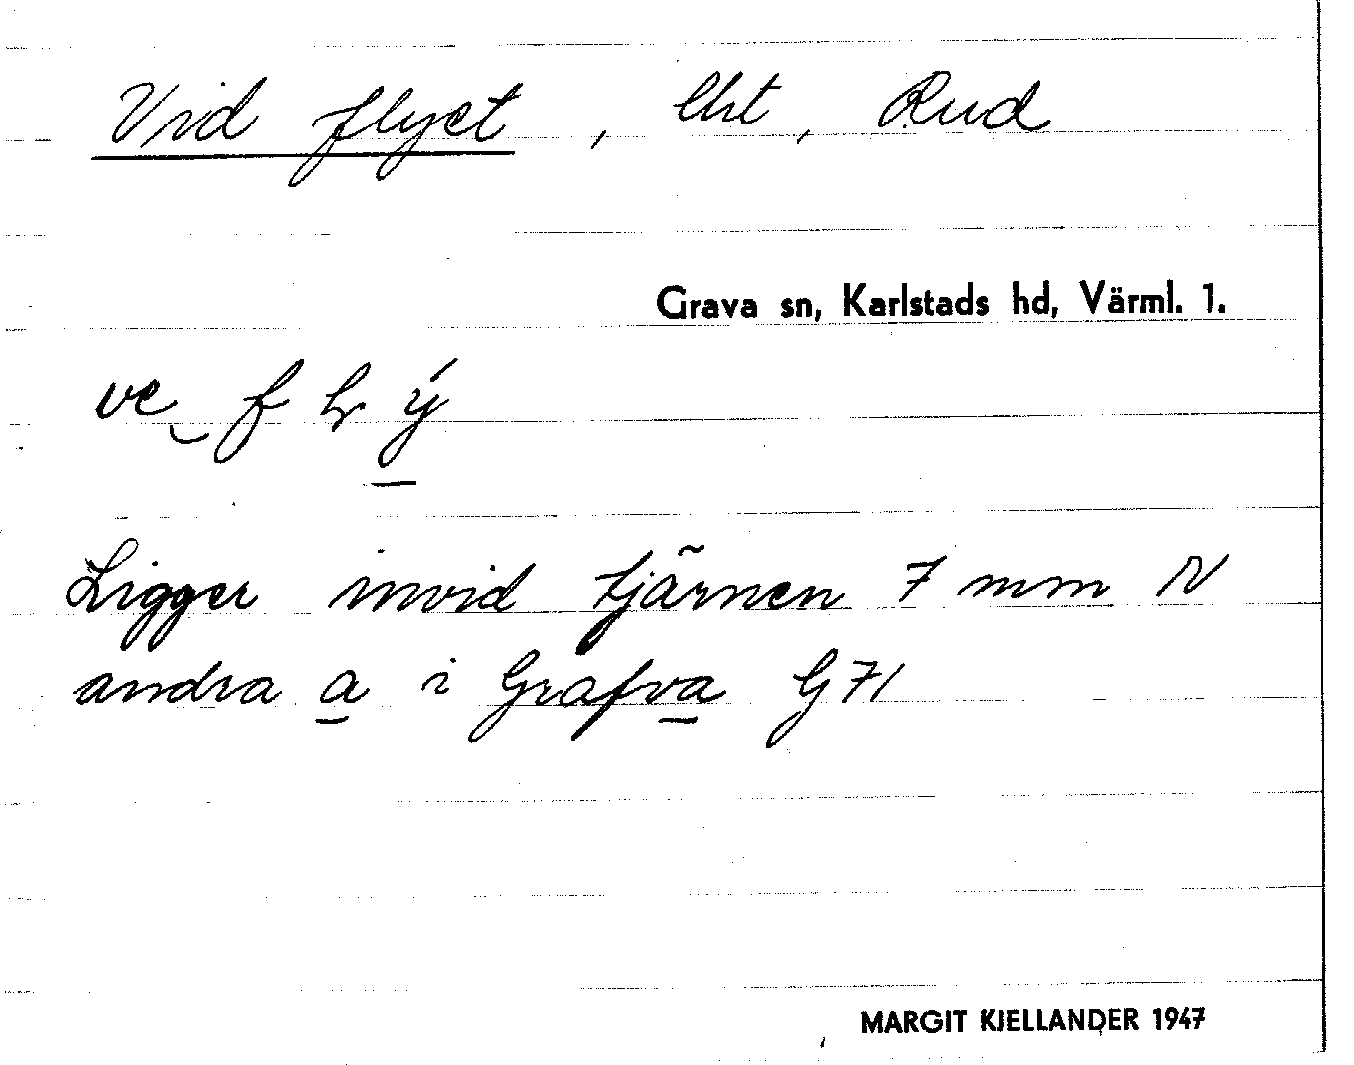 Vid flyet, lht, Rud
Grava sn, Karlstads hd, Värml. 1.
ve f
Ligger invid tjärnen 7 mm N
andra a i Grafva G 71
MARGIT KJELLANDER 1947